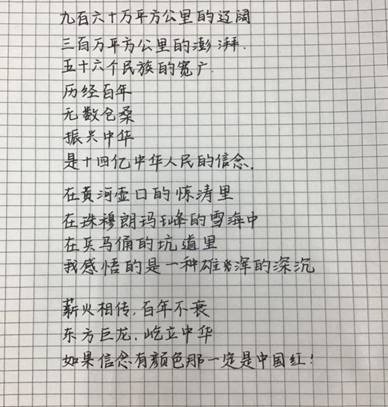 九百六十万平方公里的辽阔
三百万平方公里的澎湃.
五十六个民族的宽广
历经百年
无数仓桑
振兴中华
是十四亿中华人民的信念.
在黄河壶口的惊涛里
在珠穆朗玛峰的雪海中
在兵马俑的坑道里
我感悟的是一种雄浑的深沉
薪火相传,百年不衰
东方巨龙,屹立中华
如果信念有颜色那一定是中国红!